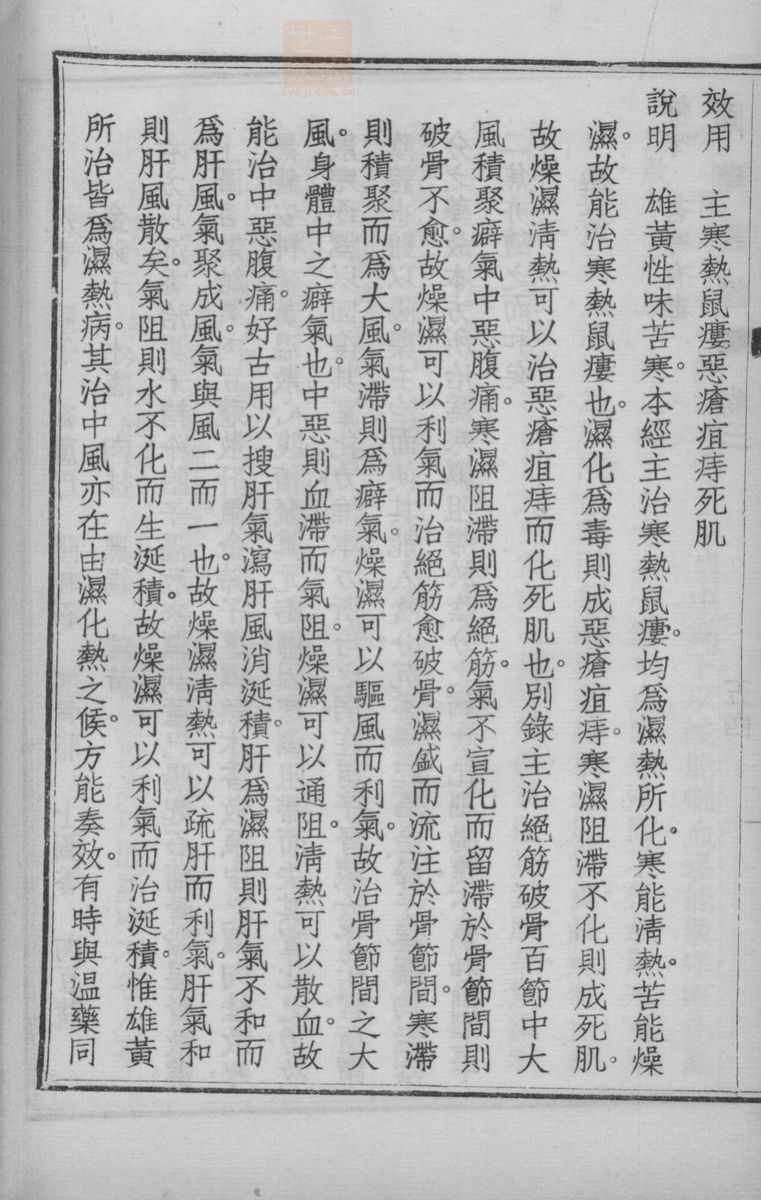 效用　主寒熱鼠瘻惡瘡疽痔死肌
說明　雄黃性味苦寒。本經主治寒熱鼠瘻。均爲濕熱所化。寒能淸熱。苦能燥
濕。故能治寒熱鼠瘻也。濕化爲毒則成惡瘡疽痔。寒濕阻滯不化則成死肌。
故燥濕淸熱可以治惡瘡疽痔而化死肌也。別錄主治絕筋破骨百節中大
風積聚癖氣中惡腹痛。寒濕阻滯則爲絕筋。氣不宣化而留滯於骨節間則
破骨不愈。故燥濕可以利氣而治絕筋愈破骨。濕盛而流注於骨節間。寒滯
則積聚而爲大風。氣滯則爲癖氣。燥濕可以驅風而利氣。故治骨節間之大
風。身體中之癖氣也。中惡則血滯而氣阻。燥濕可以通阻。淸熱可以散血。故
能治中惡腹痛。好古用以搜肝氣瀉肝風消涎積。肝爲濕阻則肝氣不和而
爲肝風。氣聚成風。氣與風二而一也。故燥濕淸熱可以疏肝而利氣。肝氣和
則肝風散矣。氣阻則水不化而生涎積。故燥濕可以利氣而治涎積。惟雄黃
所治皆爲濕熱病。其治中風亦在由濕化熱之候。方能奏效。有時與溫藥同